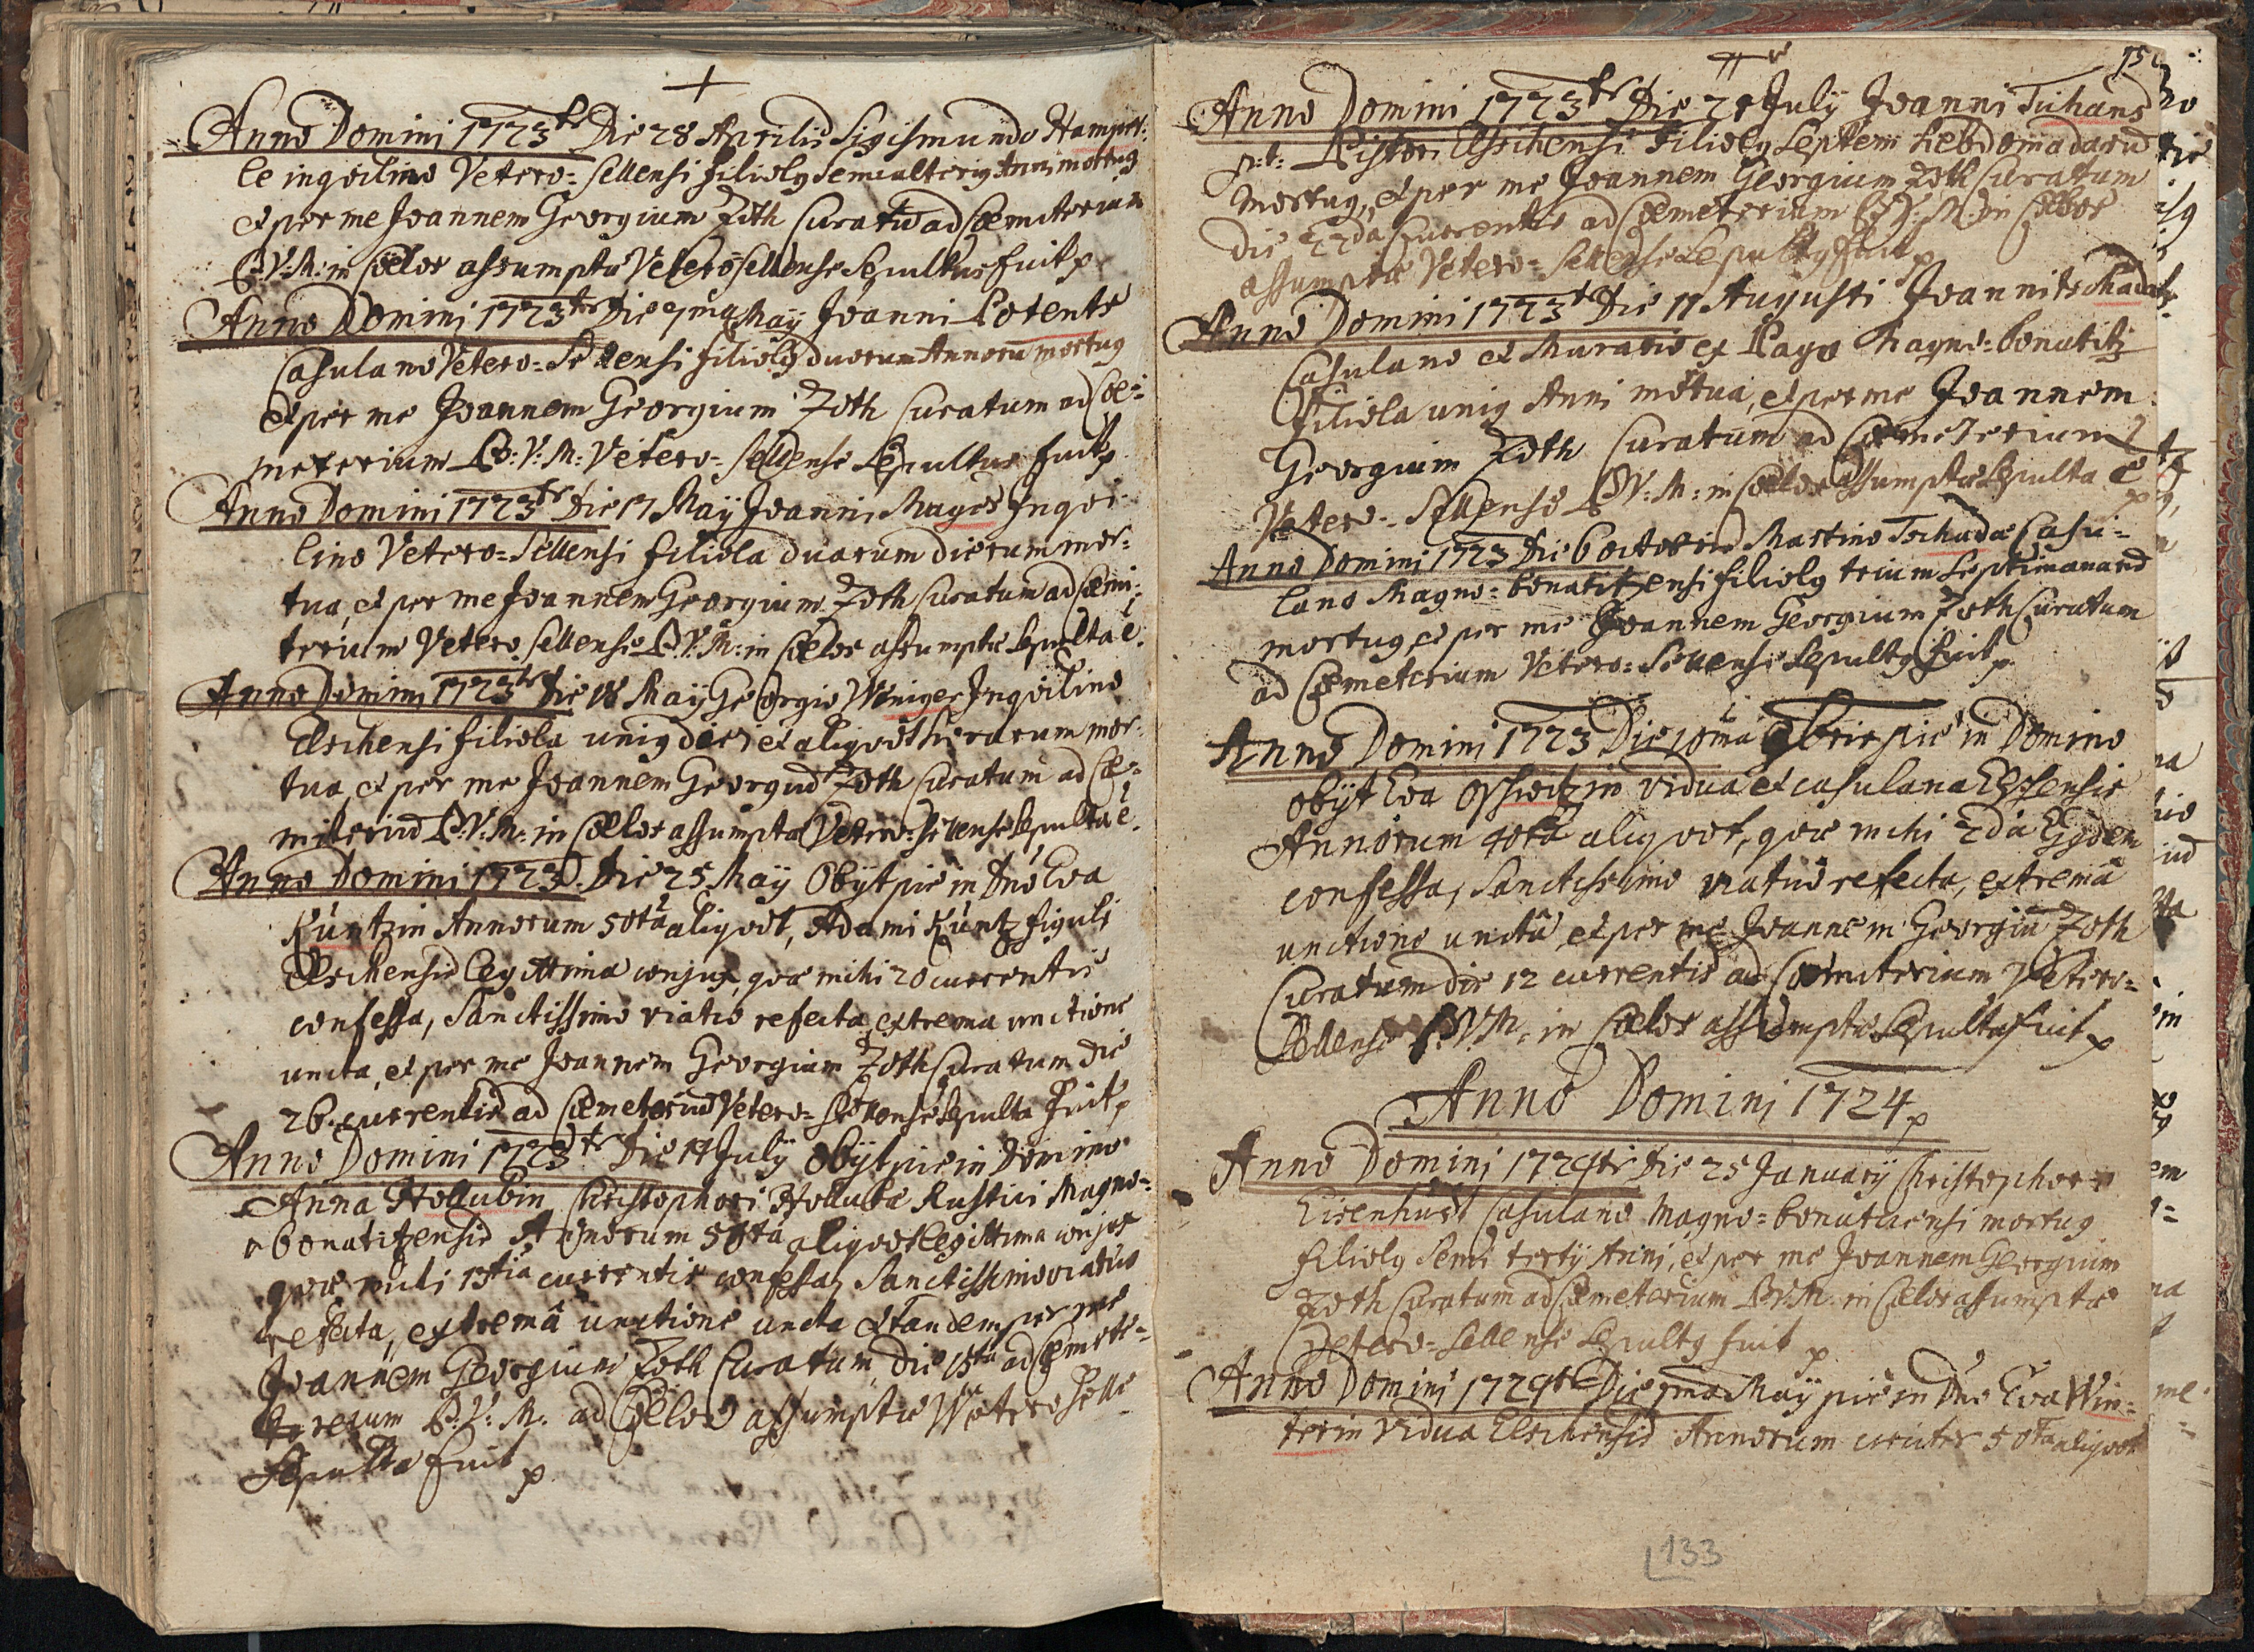 Anno Domini 1723tr Die 28 Aprilis Sigismundo Hampet:
le inqvilino Vetero=Sellensi filiolg Semialterig Anni mortug
et per me Joannem Georgium Zoth Curatū ad Coemiterium
B:V:M: in Coelos assumptæ Veterosellense Sepultus fuit p
Anno Domini 1723tr Die 7ma Maÿ Joanni Potente
Casulano Vetero=Sellensi filiolg duorum Annorū mortug
et per me Joannem Georgium Zoth Curatum ad Coe=
meterium B:V:M: Vetero=Sellense Sepultus fuit p
Anno Domini 1723tr Die 17 Maÿ Joanni Mayer Inqvi
lino Vetero=Sellensi filiola duarum dierum mor=
tua, et per me Joannem Georgium Zoth Curatum ad Coemi=
terium Vetero Sellense B:V:M: in Coelos assumptæ Sepulta ē.
Anno Domini 1723tr Die 18 Maÿ Georgio Winiger Inqvilino
Elschensi filiola unig diei et aliqvot horarum mor=
tua, et per me Joannem Georgiū Zoth Curatum ad Coe=
miteriū B:V:M: in Coelos assumptæ Vetero=Sellense Sepulta ē.
Anno Domini 1723. Die 25 Maÿ Obÿt pie in Dno Eva
Küntzin Annorum 50ta aliqvot, Adami Küntz figuli
Elschensis legittima conjux, qvæ mihi 20 currentis
confessa, Sanctissimo viatio refecta, extrema unctione
uncta, et per me Joannem Georgium Zoth Curatum die
26. currentis ad Coemeteriū Vetero=Sellense Sepulta fuit p
Anno Domini 1723tr Die 14 Julÿ Obÿt pie in Domino
Anna Hollubin Christophori Holluba Rustici Magno=
bonatitzensis Annorum 50ta aliqvot legittima conjux
qvæ mihi 13tia currentis confessa, Sanctissimo viatico
refecta, extremâ unctione uncta et tandem per me
Joannem Georgium Zoth Curatum, die 15ta ad Coemete=
rium B:V:M. ad Coelos assumptæ Vetero Selle
Sepulta fuit p
75
Anno Domini 1723tr Die 21 Julÿ Joanni Tuhans
p:t: Pistori Elschensi Filiolg Septem hebdomadarū
mortug, et per me Joannem Georgium Zoth Curatum
die 22da Currentis ad Coemeterium B:V:M: in Coelos
assumptæ Vetero=Sellense Sepultg fuit p
Anno Domini 1723t Die 17 Augusti Joanni Tschada
Casulano et Murario ex Pago Magno=bonatitz
Filiola unig Anni mortua, et per me Joannem
Georgium Zoth Curatum ad Coemeterium
Vetero=Sellense B:V:M: in Coelos assumptæ Sepulta ē
Anno Domini 1723 Die 6 octobris Martino Tschuda Casu=
lano Magno=bonatitzensi filiolg trium Septimanarū
mortug, et per me Joannem Georgium Zoth Curatum
ad Coemeterium Vetero=Sellense Sepultg fuit p
Anno Domini 1723 Die 10ma 9bris pie in Domino
obÿt Eva Oschwitzin vidua et casulana Elschensis
Annorum 40ta aliqvot, qvæ mihi 2da Ejgdem
confessa, Sanctissimo viatico refecta, extremâ
unctione unctâ, et per me Joannem Georgiū Zoth
Curatum die 12 currentis ad Coemiterium Vetero=
Sellense B.V.M. in Coelos assumptæ Sepulta fuit p
Anno Domini 1724 p
Anno Domini 1724tr Die 25 Januarÿ Christophoro
Eisenhuet Casulano Magno=bonaticensi mortug
filiolg Semi tertÿ Anni, et per me Joannem Georgium
Zoth Curatum ad Coemeterium B:V:M: in Coelos assumptæ
Vetero=Sellense Sepultg fuit p
Anno Domini 1724tr Die 7ma Maÿ pie in Dno Eva Win=
terin Vidua Elschensis Annorum circiter 50ta aliqvot
133